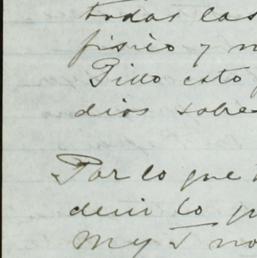 todas las
fisico y m
Pido esto
dios sobre
Por lo que
decir lo q
My T no